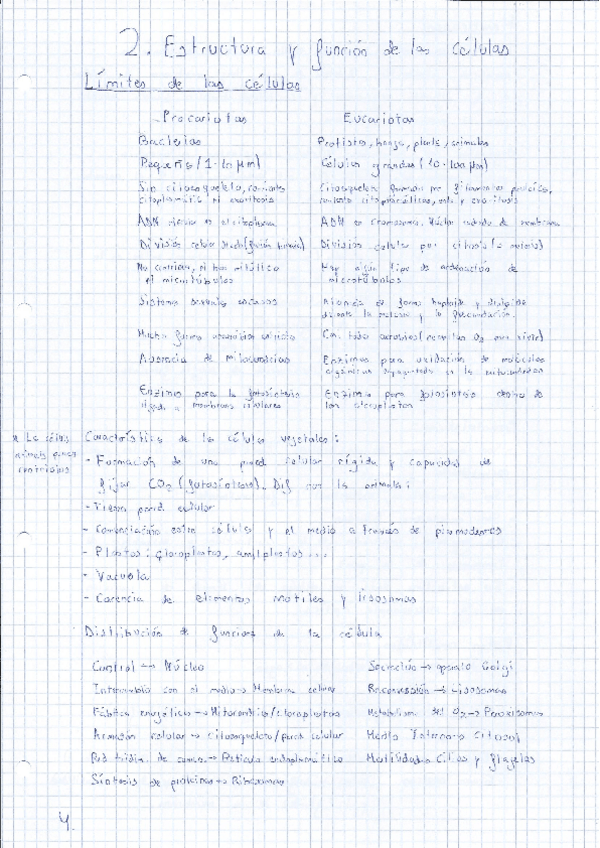 2. Estructura y función de las células
Límites de las células
Procariotas Eucariotas
Bacterias Protistas, hongs, plants, animales
Pequeñs (1-10 µm) Células grandes (10-100 µm)
Sin citoesqueleto, corrientes Citoesqueleto formado por filamentos proteicos,
citoplasmátic ni exocitosis
ADN en el citoplasma ADN en cromosomas. Núcleo rodeado de membrana
División celular División celular por citosis
No centriolos, ni huso mitótico Hay algún tipo de ordenación de
ni microtúbulos microtúbulos
Sistemas sexuales escasos Alternancia de forma haploide y diploide
durante la meiosis y la fecundación.
Ausencia de mitocondrias Enzimas para oxidación de moléculas
orgánicas en la mitocondrias
Enzimas para la fotosíntesis Enzimas para fotosíntesis dentro de
ligada a membranas celulares los cloroplastos
Característics de la células vegetales:
centriolos
- Formación de una pared celular rígida y capacidad de
fijar CO2 (fotosíntesis). Dif con la animal:
- Tienen pared celular
- Comunicación entre células y el medio a través de plasmodesmos
- Plastos: cloroplastos, amiloplastos...
- Vacuola
- Carencia de elementos motiles y lisosomas
Distribución de funciones de la célula
Control → Núcleo Secreción → aparato Golgi
Intercambio con el medio → Membrana celular → Lisosomas
Fábrica energética → Mitocondrias/cloroplastos Metabolismo del O2 → Peroxisomas
Armazón celular → citoesqueleto/pared celular Medio Interno → Citosol
Red de → Retículo endoplasmático Motilidad → Cilios y flagelos
Síntesis de proteínas → Ribosomas
4